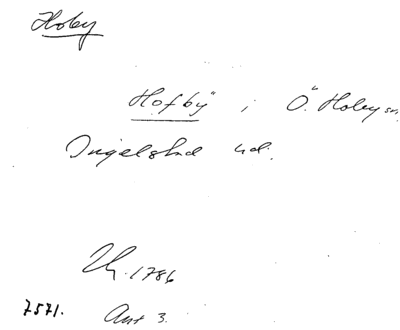 Hoby
Hofbÿ i Ö. Hoby sn.
Ingelstad hd.
1786
7571. Ant 3.